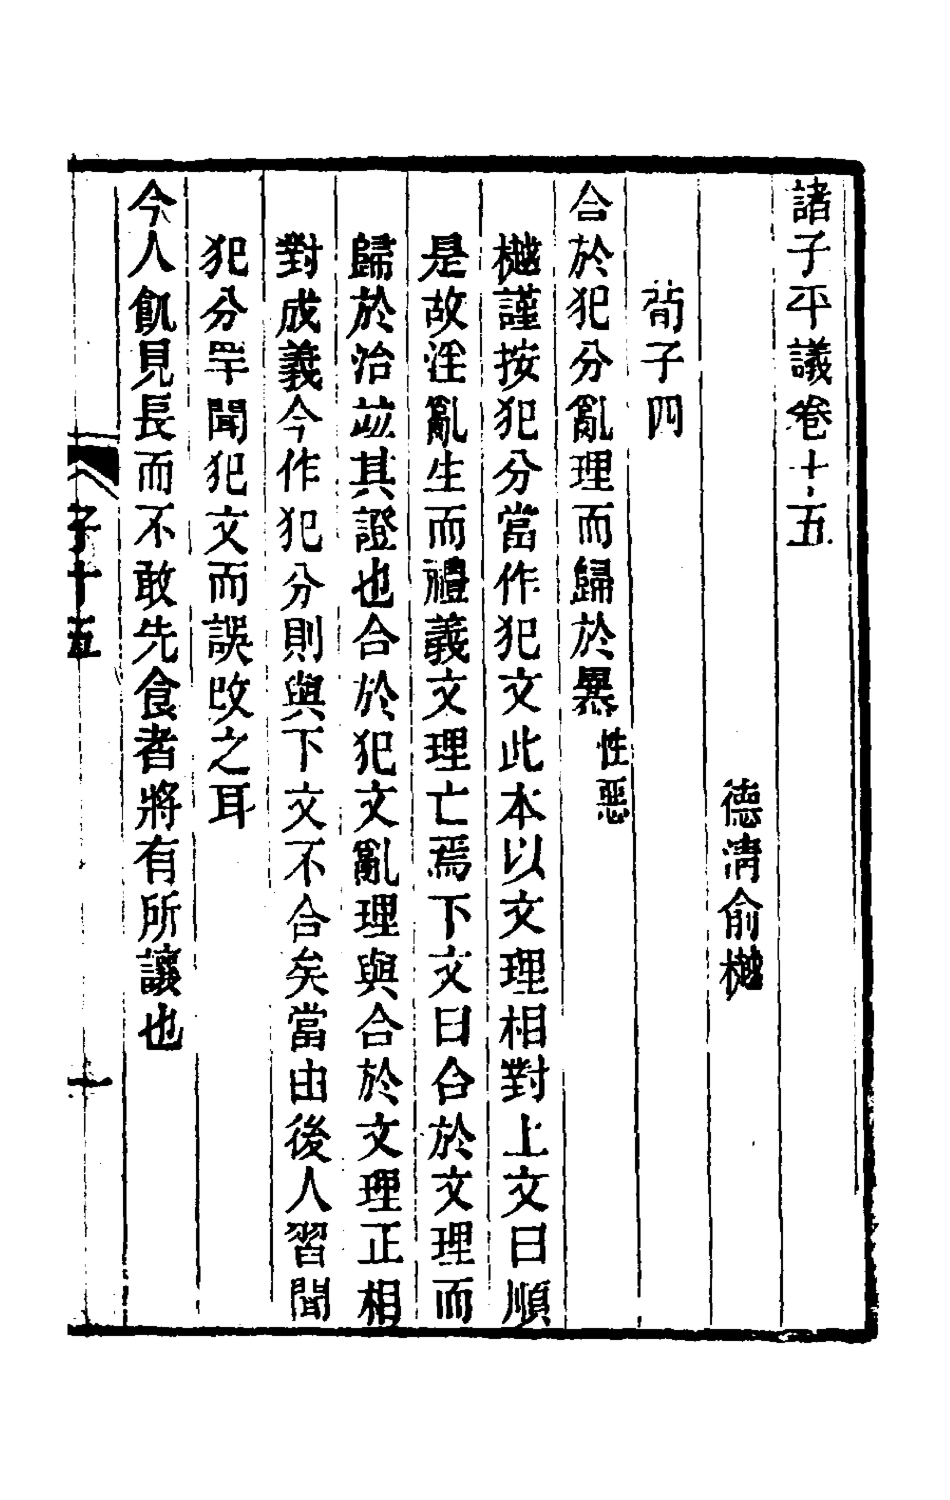 諸子平議卷十五
德淸俞樾
荀子四
合於犯分亂理而歸於暴性惡
樾謹按犯分當作犯文此本以文理相對上文曰順
是故淫亂生而禮義文理亡焉下文曰合於文理而
歸於治竝其證也合於犯文亂理與合於文理正相
對成義今作犯分則與下文不合矣當由後人習聞
犯分罕聞犯文而誤改之耳
今人飢見長而不敢先食者將有所讓也
子十五
一